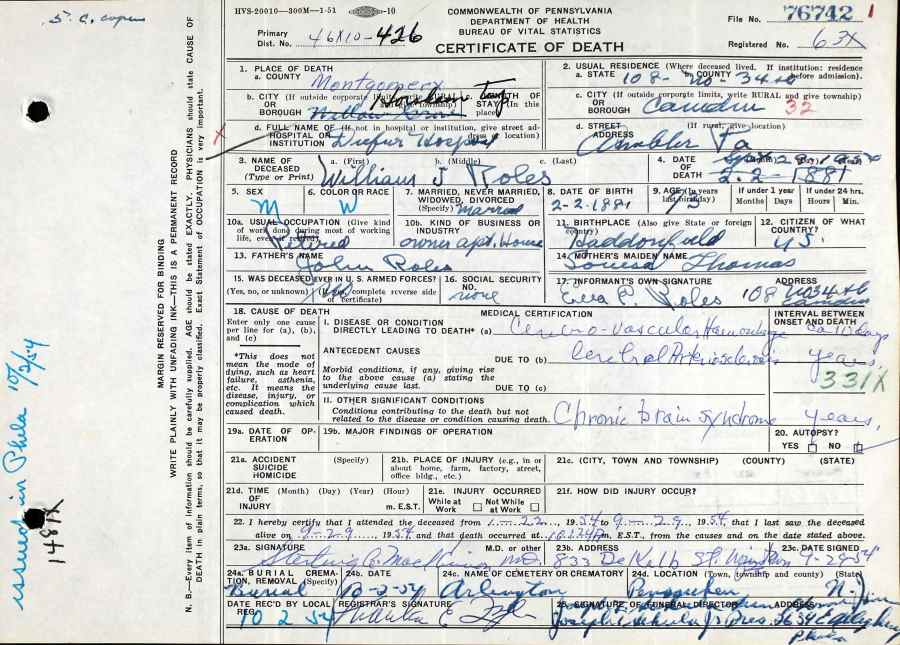 HVS-20010—300M—1-51 -10
COMMONWEALTH OF PENNSYLVANIA
DEPARTMENT OF HEALTH
BUREAU OF VITAL STATISTICS
File No. 76742 1
Primary
Dist. No. 46X10-426
CERTIFICATE OF DEATH
Registered No. 63X
1. PLACE OF DEATH
a. COUNTY Montgomery
2. USUAL RESIDENCE (Where deceased lived. If institution: residence before admission).
a. STATE 108- No- 34th b. COUNTY
b. CITY (If outside corporate limits, write RURAL and give township)
OR
BOROUGH Willow Grove
Horsham Twp
c. LENGTH OF STAY (In this place)
c. CITY (If outside corporate limits, write RURAL and give township)
OR
BOROUGH Camden 32
d. FULL NAME OF (If not in hospital or institution, give street address or location)
HOSPITAL OR
INSTITUTION Dufur Hospital
d. STREET (If rural, give location)
ADDRESS Ambler Pa
3. NAME OF DECEASED
(Type or Print)
a. (First) b. (Middle) c. (Last)
William J Roles
4. DATE OF DEATH (Month) (Day) (Year)
Sept 29 1954
2-2-1881
5. SEX
M
6. COLOR OR RACE
W
7. MARRIED, NEVER MARRIED, WIDOWED, DIVORCED
(Specify) Married
8. DATE OF BIRTH
2-2-1881
9. AGE (In years last birthday)
73
If under 1 year
Months Days
If under 24 hrs.
Hours Min.
10a. USUAL OCCUPATION (Give kind of work done during most of working life, even if retired)
Retired
10b. KIND OF BUSINESS OR INDUSTRY
owner apt. House
11. BIRTHPLACE (Also give State or foreign country)
Haddonfield
12. CITIZEN OF WHAT COUNTRY?
U.S.
13. FATHER'S NAME
John Roles
14. MOTHER'S MAIDEN NAME
Louisa Thomas
15. WAS DECEASED EVER IN U. S. ARMED FORCES?
(Yes, no, or unknown) (If yes, complete reverse side of certificate)
No
16. SOCIAL SECURITY NO.
none
17. INFORMANT'S OWN SIGNATURE ADDRESS
Eva R. Roles 108 No 34th Camden
18. CAUSE OF DEATH
Enter only one cause per line for (a), (b), and (c)
*This does not mean the mode of dying, such as heart failure, asthenia, etc. It means the disease, injury, or complication which caused death.
MEDICAL CERTIFICATION
INTERVAL BETWEEN ONSET AND DEATH
I. DISEASE OR CONDITION
DIRECTLY LEADING TO DEATH* (a) Cerebro-vascular Haemorrhage ca 10 days
ANTECEDENT CAUSES
DUE TO (b) Cerebral Arteriosclerosis years,
331X
Morbid conditions, if any, giving rise to the above cause (a) stating the underlying cause last.
DUE TO (c)
II. OTHER SIGNIFICANT CONDITIONS
Conditions contributing to the death but not related to the disease or condition causing death.
Chronic brain syndrome years,
19a. DATE OF OPERATION
19b. MAJOR FINDINGS OF OPERATION
20. AUTOPSY?
YES NO
21a. ACCIDENT (Specify)
SUICIDE
HOMICIDE
21b. PLACE OF INJURY (e.g., in or about home, farm, factory, street, office bldg., etc.)
21c. (CITY, TOWN AND TOWNSHIP) (COUNTY) (STATE)
21d. TIME (Month) (Day) (Year) (Hour)
OF
INJURY m. EST.
21e. INJURY OCCURRED
While at Work Not While at Work
21f. HOW DID INJURY OCCUR?
22. I hereby certify that I attended the deceased from 1-22, 1954 to 9-29, 1954, that I last saw the deceased
alive on 9-29, 1954 and that death occurred at m. EST., from the causes and on the date stated above.
23a. SIGNATURE M.D. or other
M.D.
23b. ADDRESS
833 DeKalb St.
23c. DATE SIGNED
9-29-54
24a. BURIAL, CREMATION, REMOVAL (Specify)
Burial
24b. DATE
10-2-54
24c. NAME OF CEMETERY OR CREMATORY
Arlington
24d. LOCATION (Town, township and county) (State)
Pensauken N. J.
DATE REC'D BY LOCAL REG.
10 2 54
REGISTRAR'S SIGNATURE
25. SIGNATURE OF FUNERAL DIRECTOR ADDRESS
Phila
MARGIN RESERVED FOR BINDING
WRITE PLAINLY WITH UNFADING INK—THIS IS A PERMANENT RECORD
N. B.—Every item of information should be carefully supplied. AGE should be stated EXACTLY. PHYSICIANS should state CAUSE OF
DEATH in plain terms, so that it may be properly classified. Exact Statement of OCCUPATION is very important.
issued in Phila 10/2/54
1481X